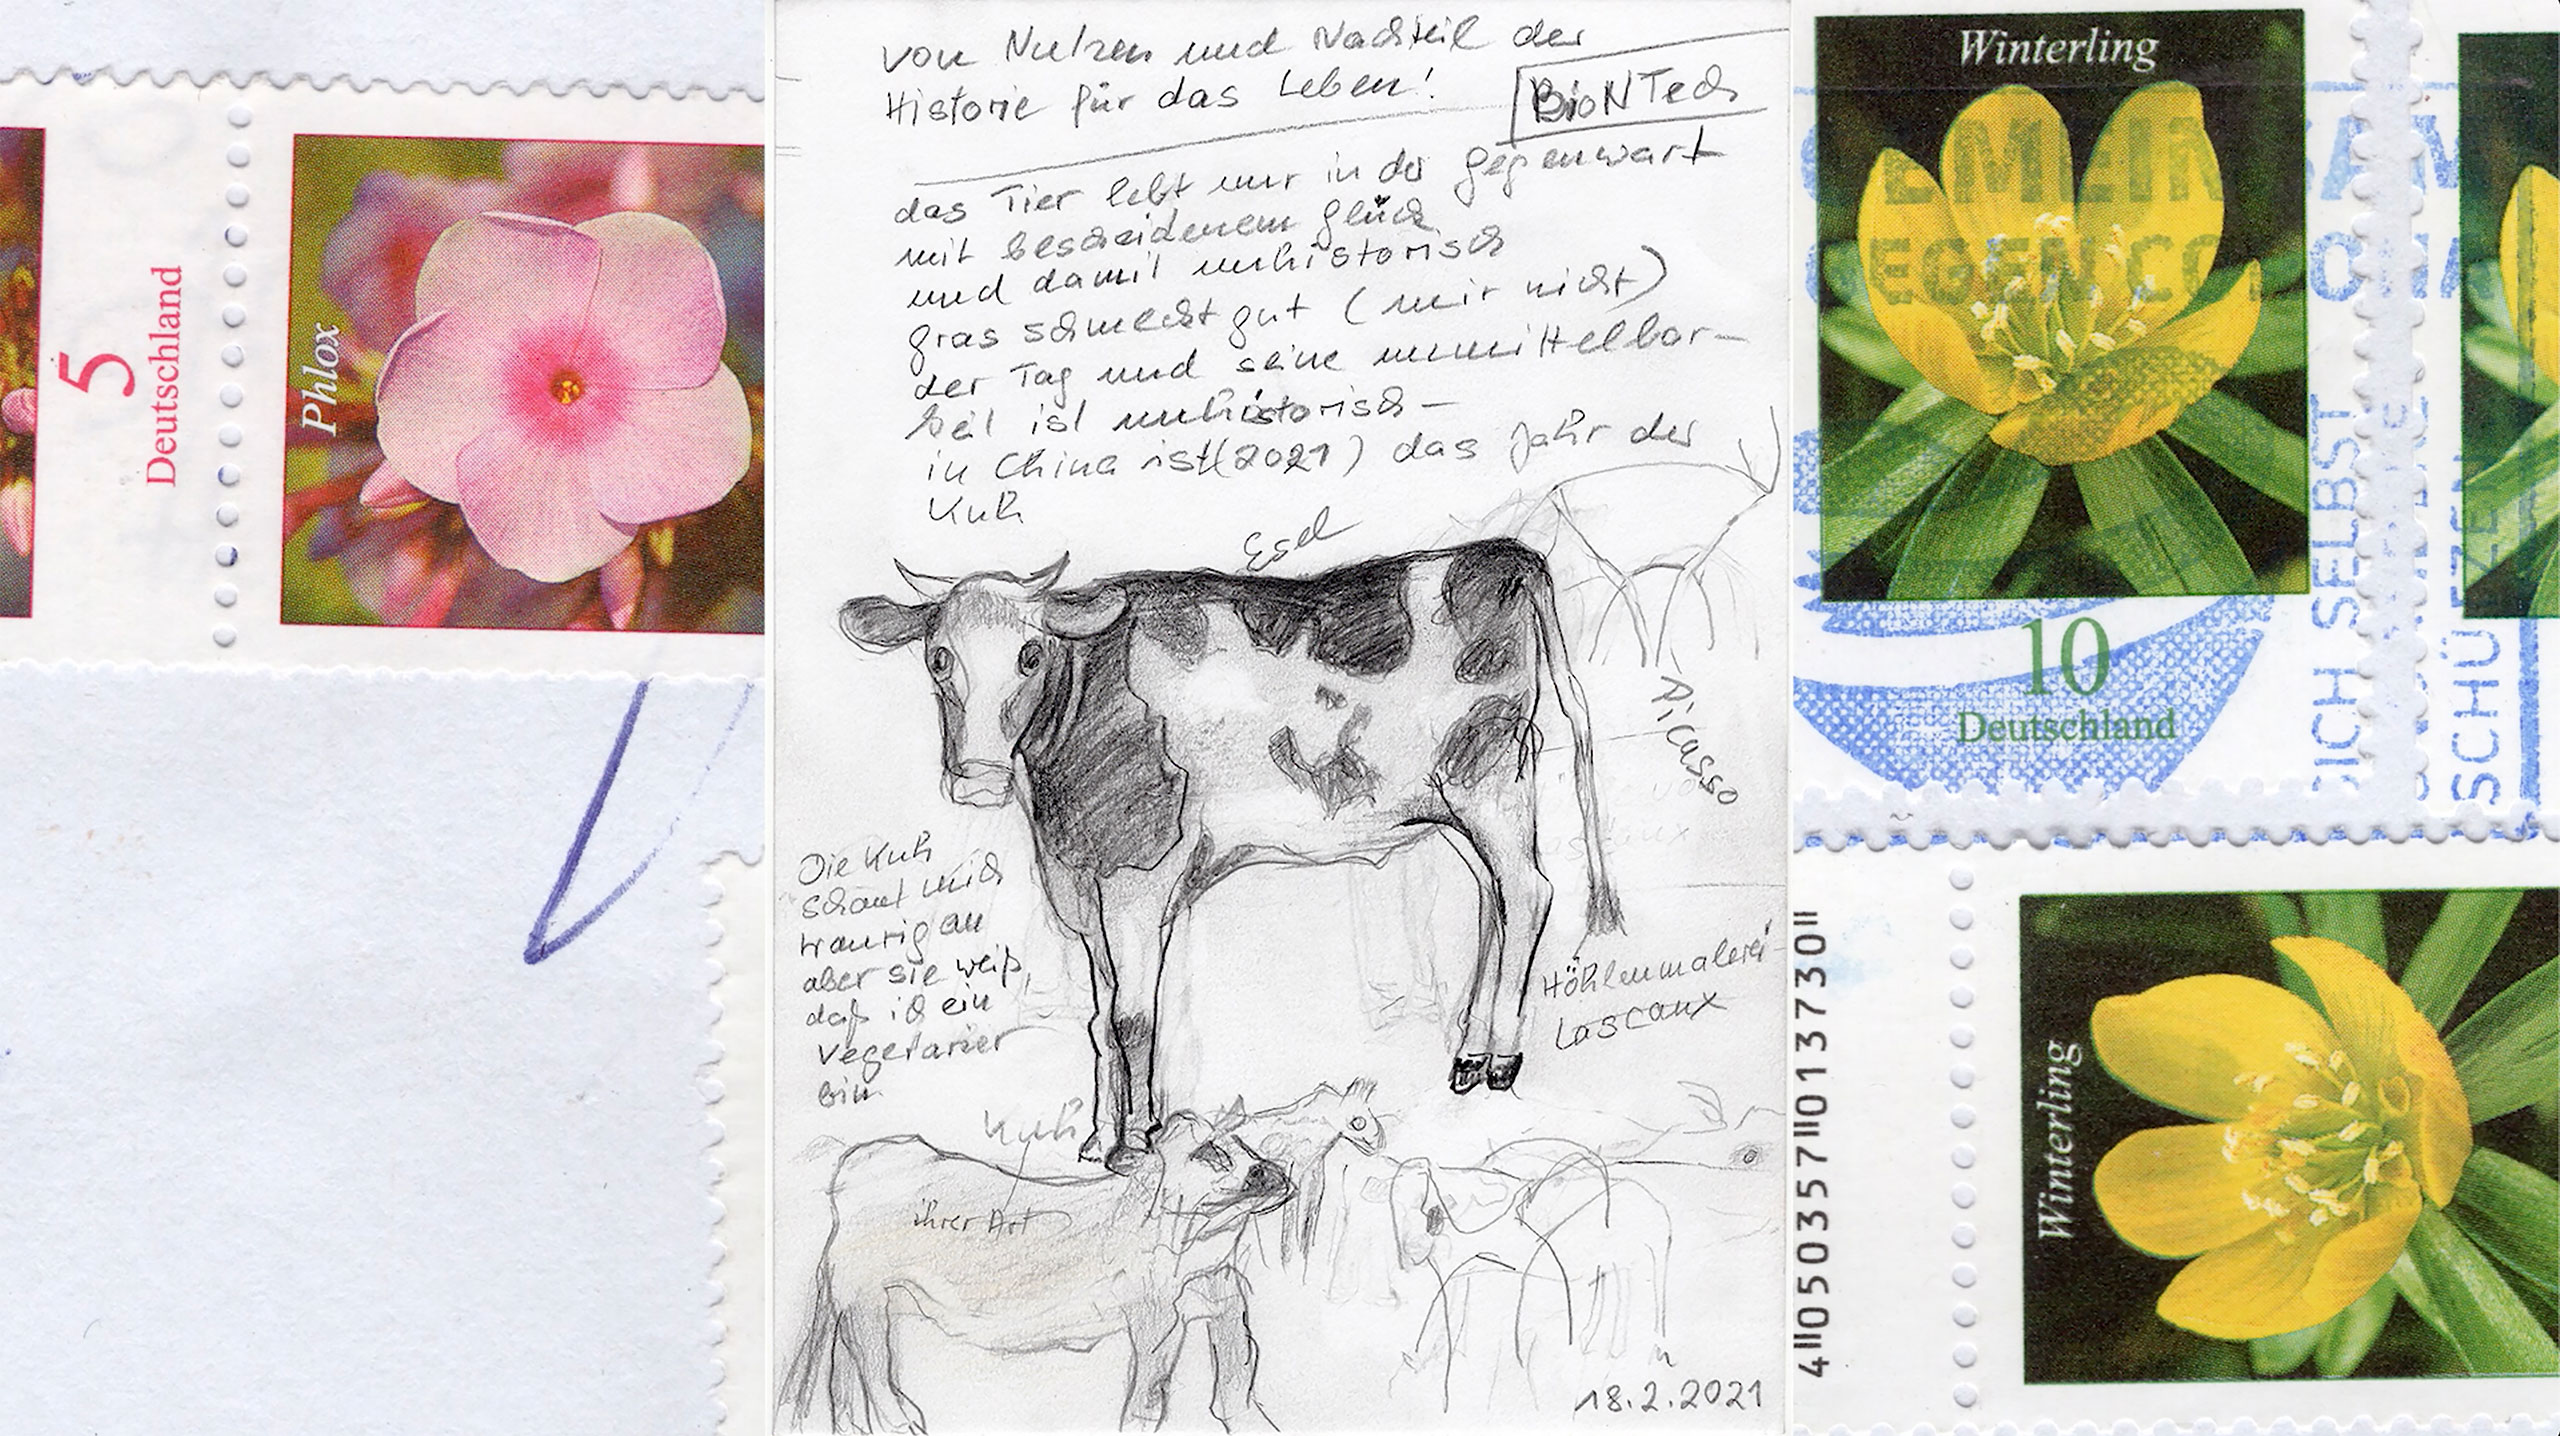 5
Deutschland
Phlox
von Nutzen und Nachteil der
Historie für das Leben!
BioNTech
das Tier lebt nur in der Gegenwart
mit bescheidenem Glück
und damit unhistorisch
Gras schmeckt gut (mir nicht)
der Tag und seine unmittelbar-
keit ist unhistorisch –
in China ist (2021) das Jahr der
Kuh
Esel
Picasso
Die Kuh
schaut mich
traurig an
aber sie weiß,
daß ich ein
Vegetarier
bin.
Höhlenmalerei
Lascaux
Kuh
ihrer Art
18.2.2021
Winterling
GEMEINSAM
GEGEN CORONA
SICH SELBST
SCHÜTZEN
10
Deutschland
4"050357"013730"
Winterling